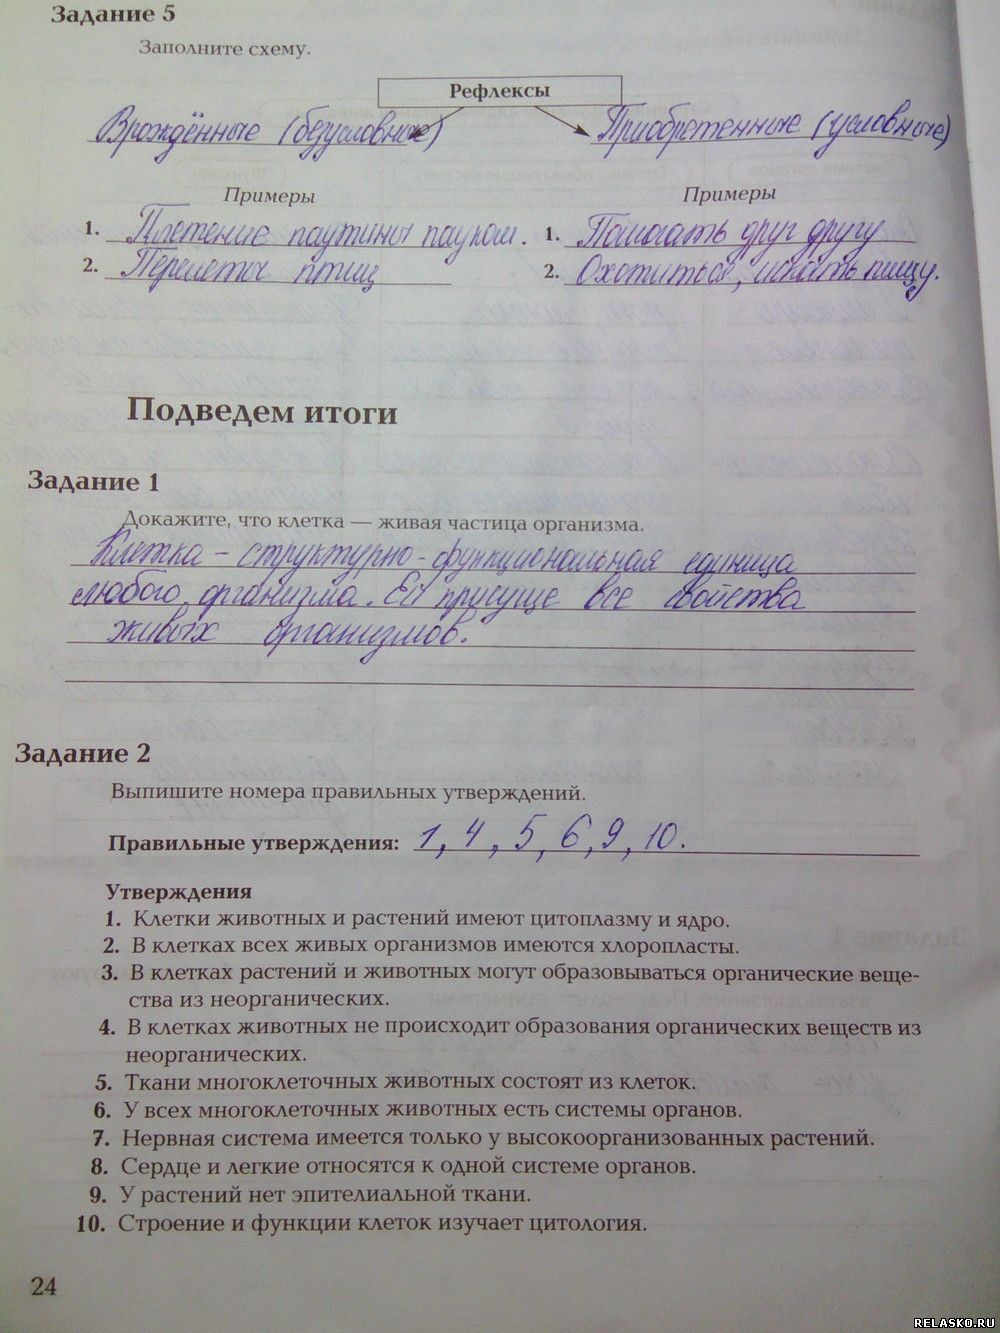 Задание 5
Заполните схему.
Рефлексы
Врождённые (безусловные) Приобретенные (условные)
Примеры Примеры
1. Плетение паутины пауком. 1. Помогать друг другу
2. Перелеты птиц 2. Охотиться, искать пищу.
Подведем итоги
Задание 1
Докажите, что клетка — живая частица организма.
Клетка - структурно-функциональная единица
любого организма. Ей присуще все свойства
живых организмов.
Задание 2
Выпишите номера правильных утверждений.
Правильные утверждения: 1, 4, 5, 6, 9, 10.
Утверждения
1. Клетки животных и растений имеют цитоплазму и ядро.
2. В клетках всех живых организмов имеются хлоропласты.
3. В клетках растений и животных могут образовываться органические веще-
ства из неорганических.
4. В клетках животных не происходит образования органических веществ из
неорганических.
5. Ткани многоклеточных животных состоят из клеток.
6. У всех многоклеточных животных есть системы органов.
7. Нервная система имеется только у высокоорганизованных растений.
8. Сердце и легкие относятся к одной системе органов.
9. У растений нет эпителиальной ткани.
10. Строение и функции клеток изучает цитология.
24
RELASKO.RU